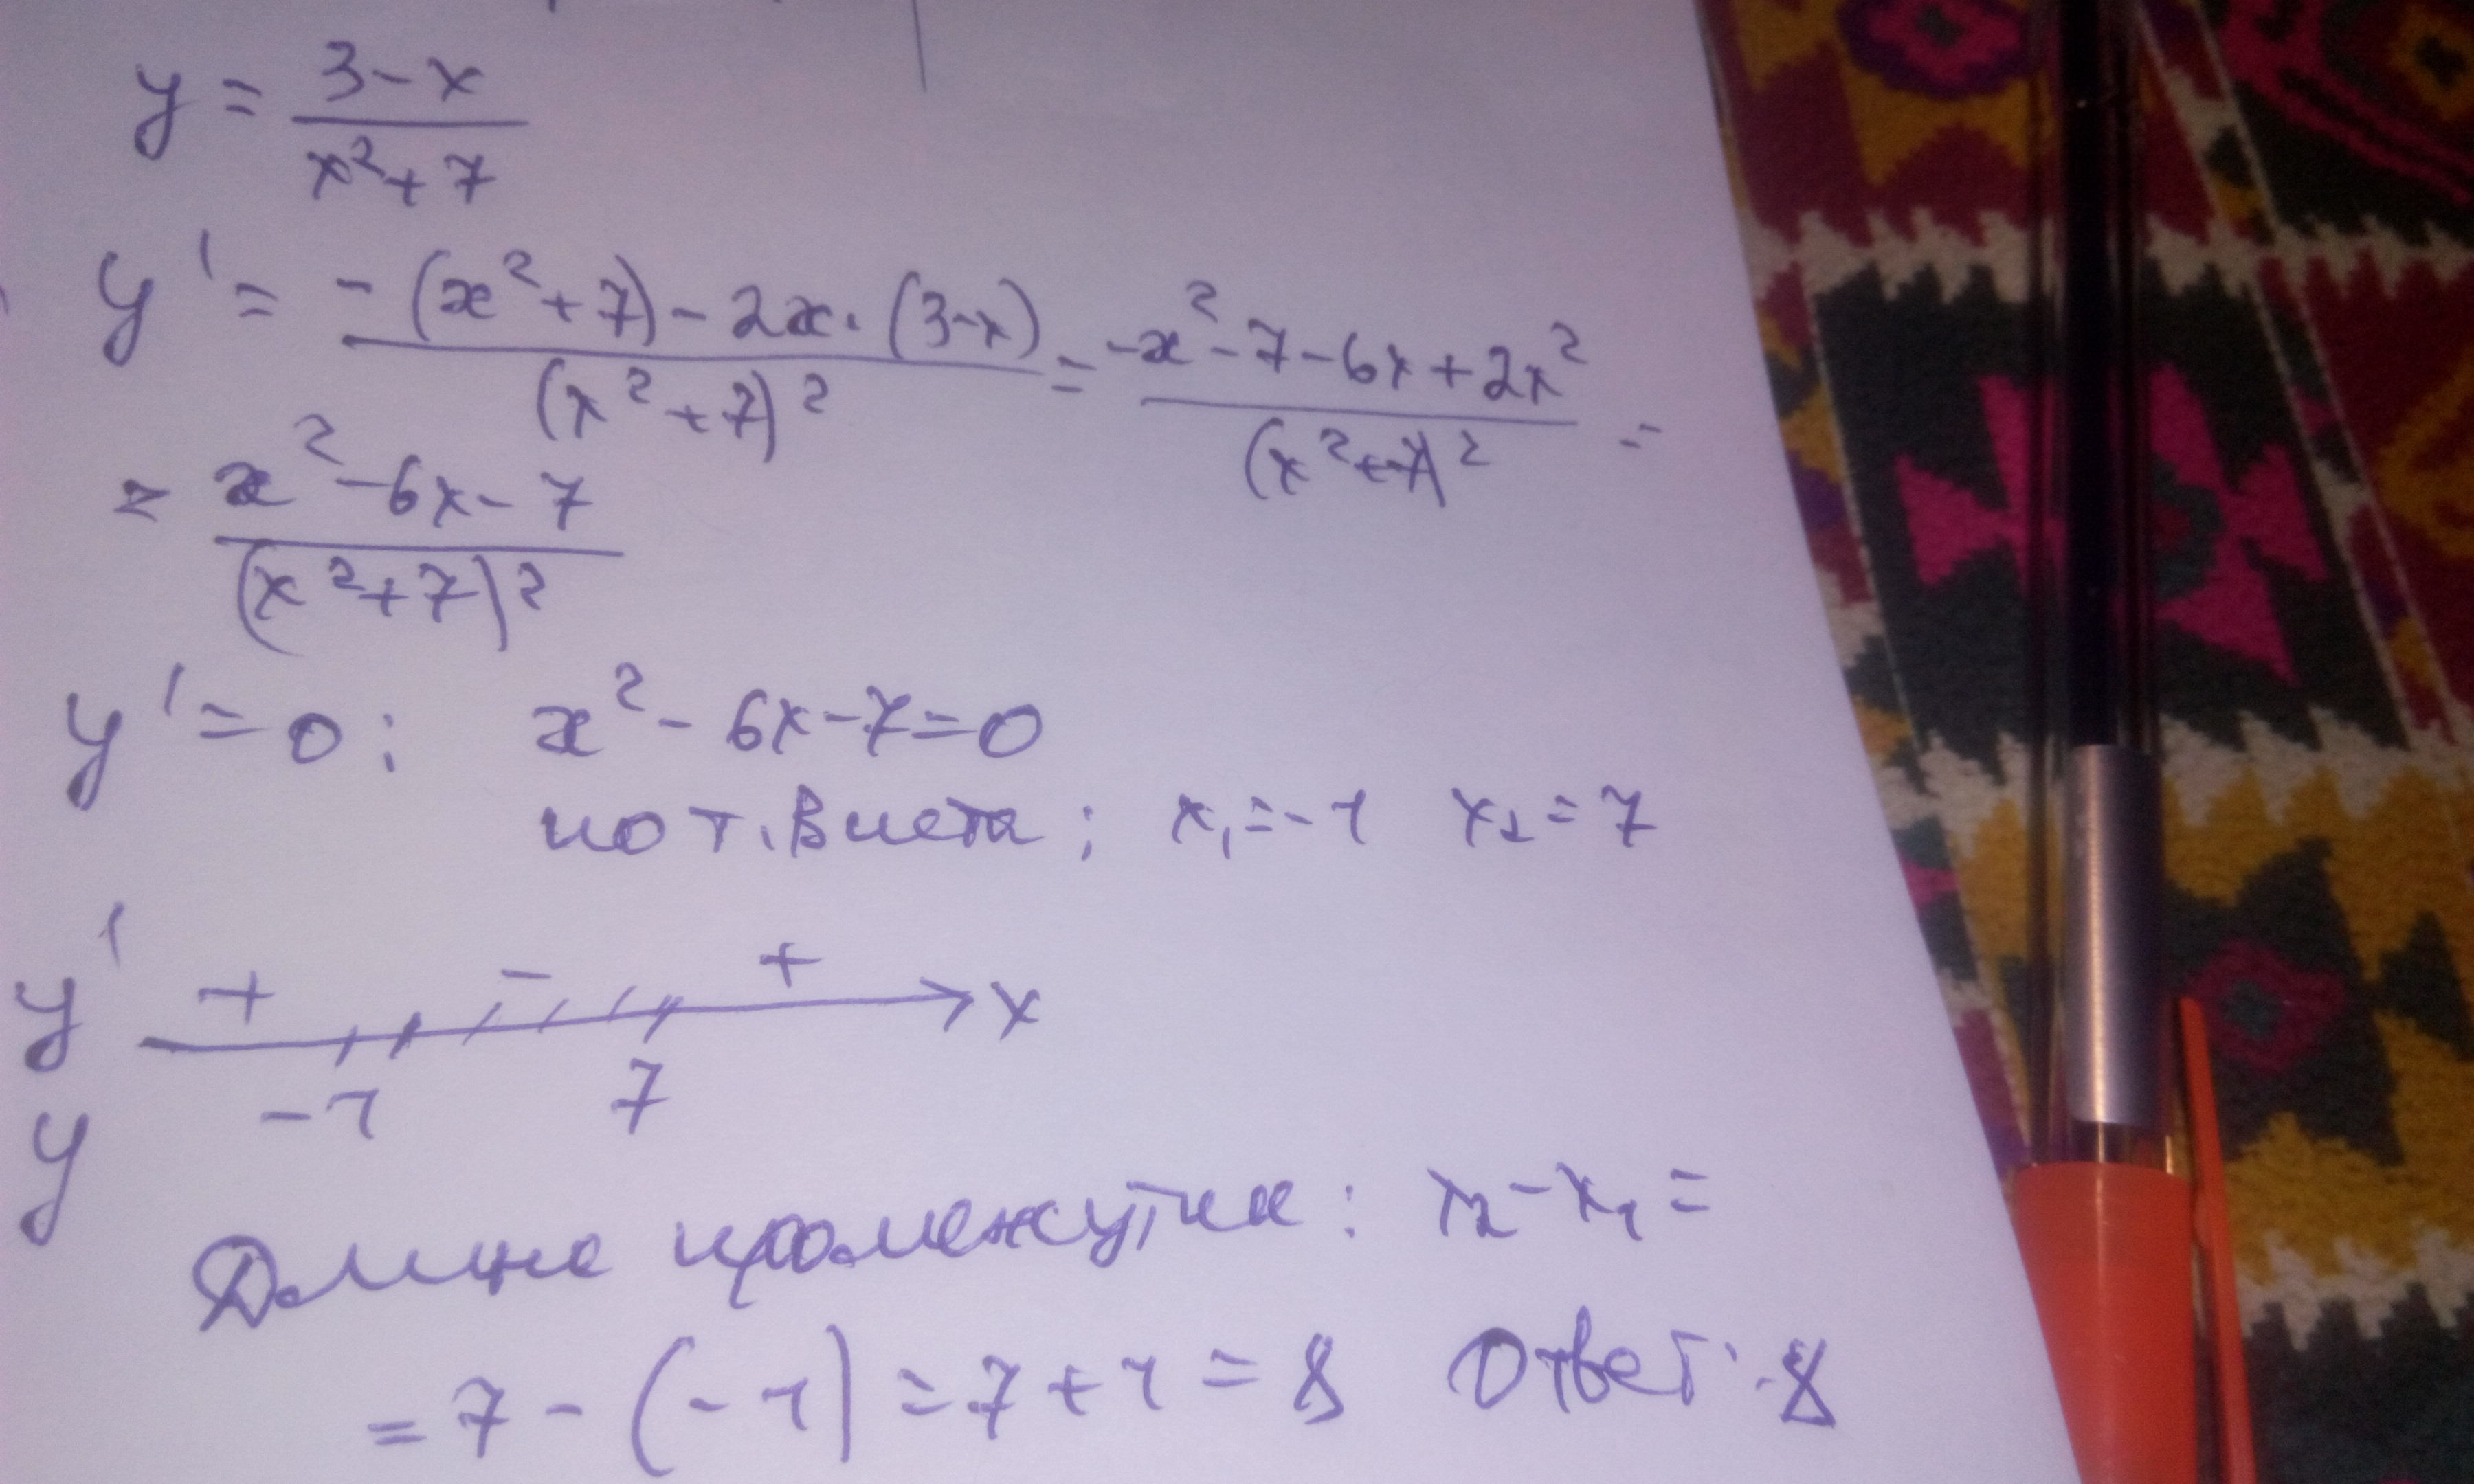 y = (3-x)/(x²+7)
y' = (-(x²+7)-2x·(3-x))/((x²+7)²) = (-x²-7-6x+2x²)/((x²+7)²) =
= (x²-6x-7)/((x²+7)²)
y'=0: x²-6x-7=0
по т. Виета: x₁=-1 x₂=7
y' + - + x
-1 7
y
Длина промежутка: x₂-x₁=
=7-(-1)=7+1=8 Ответ: 8